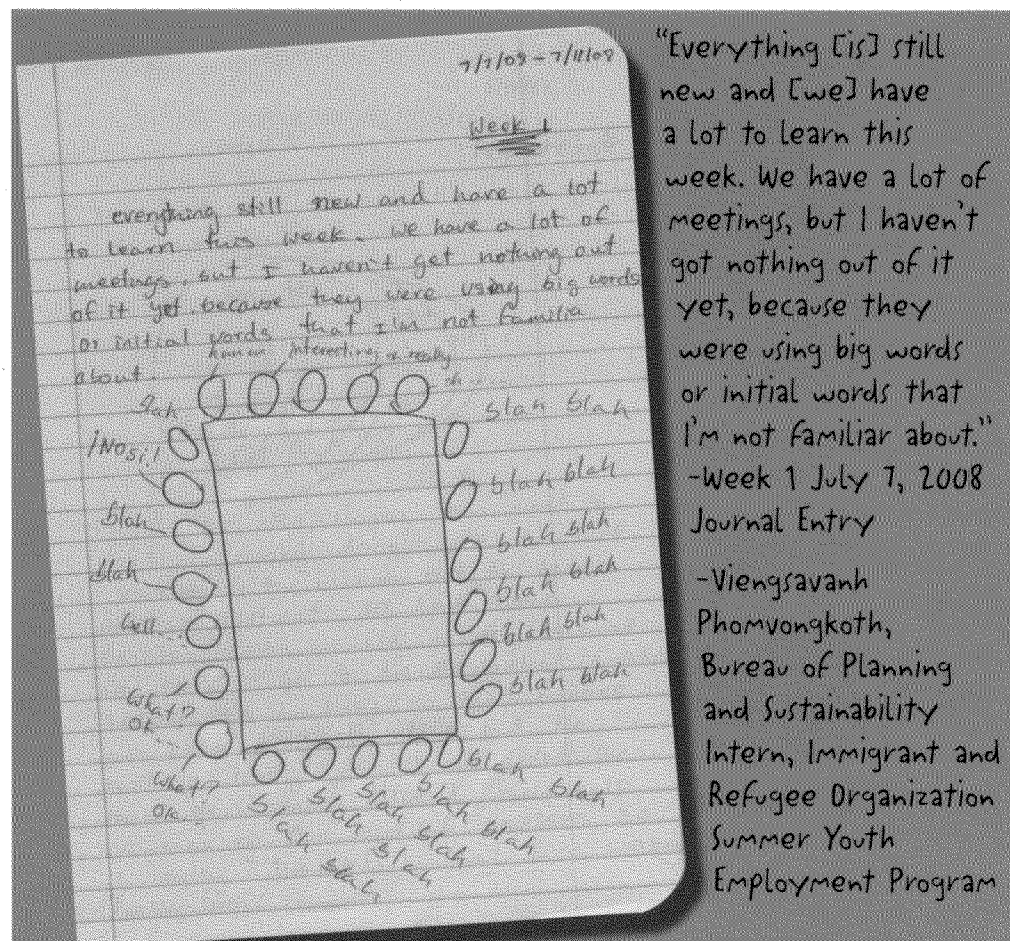 7/7/08 - 7/11/08
Week 1
everything still new and have a lot
to learn this week. We have a lot of
meetings, but I haven't get nothing out
of it yet because they were using big words
or initial words that I'm not familia
about.
interesting
really
blah
blah
blah
well...
What?
OK...
What?
OK...
blah blah
blah blah
blah blah
blah blah
blah blah
blah blah
blah blah
blah blah
blah blah
blah blah
blah blah
"Everything [is] still
new and [we] have
a lot to learn this
week. We have a lot of
meetings, but I haven't
got nothing out of it
yet, because they
were using big words
or initial words that
I'm not familiar about."
-Week 1 July 7, 2008
Journal Entry
-Viengsavanh
Phomvongkoth,
Bureau of Planning
and Sustainability
Intern, Immigrant and
Refugee Organization
Summer Youth
Employment Program